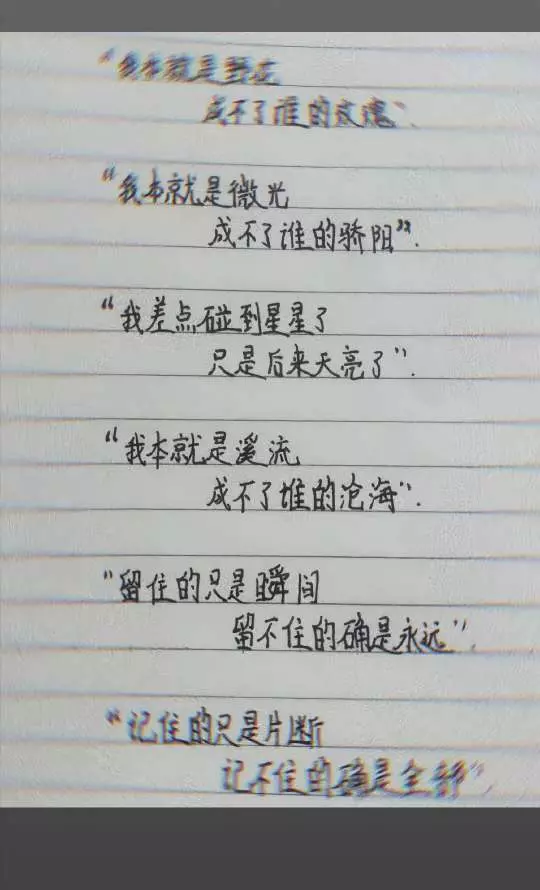 “我本就是野花
成不了谁的玫瑰”.
“我本就是微光
成不了谁的骄阳”.
“我差点碰到星星了
只是后来天亮了”.
“我本就是溪流
成不了谁的沧海”.
“留住的只是瞬间
留不住的确是永远”.
“记住的只是片断
记不住的确是全部”.